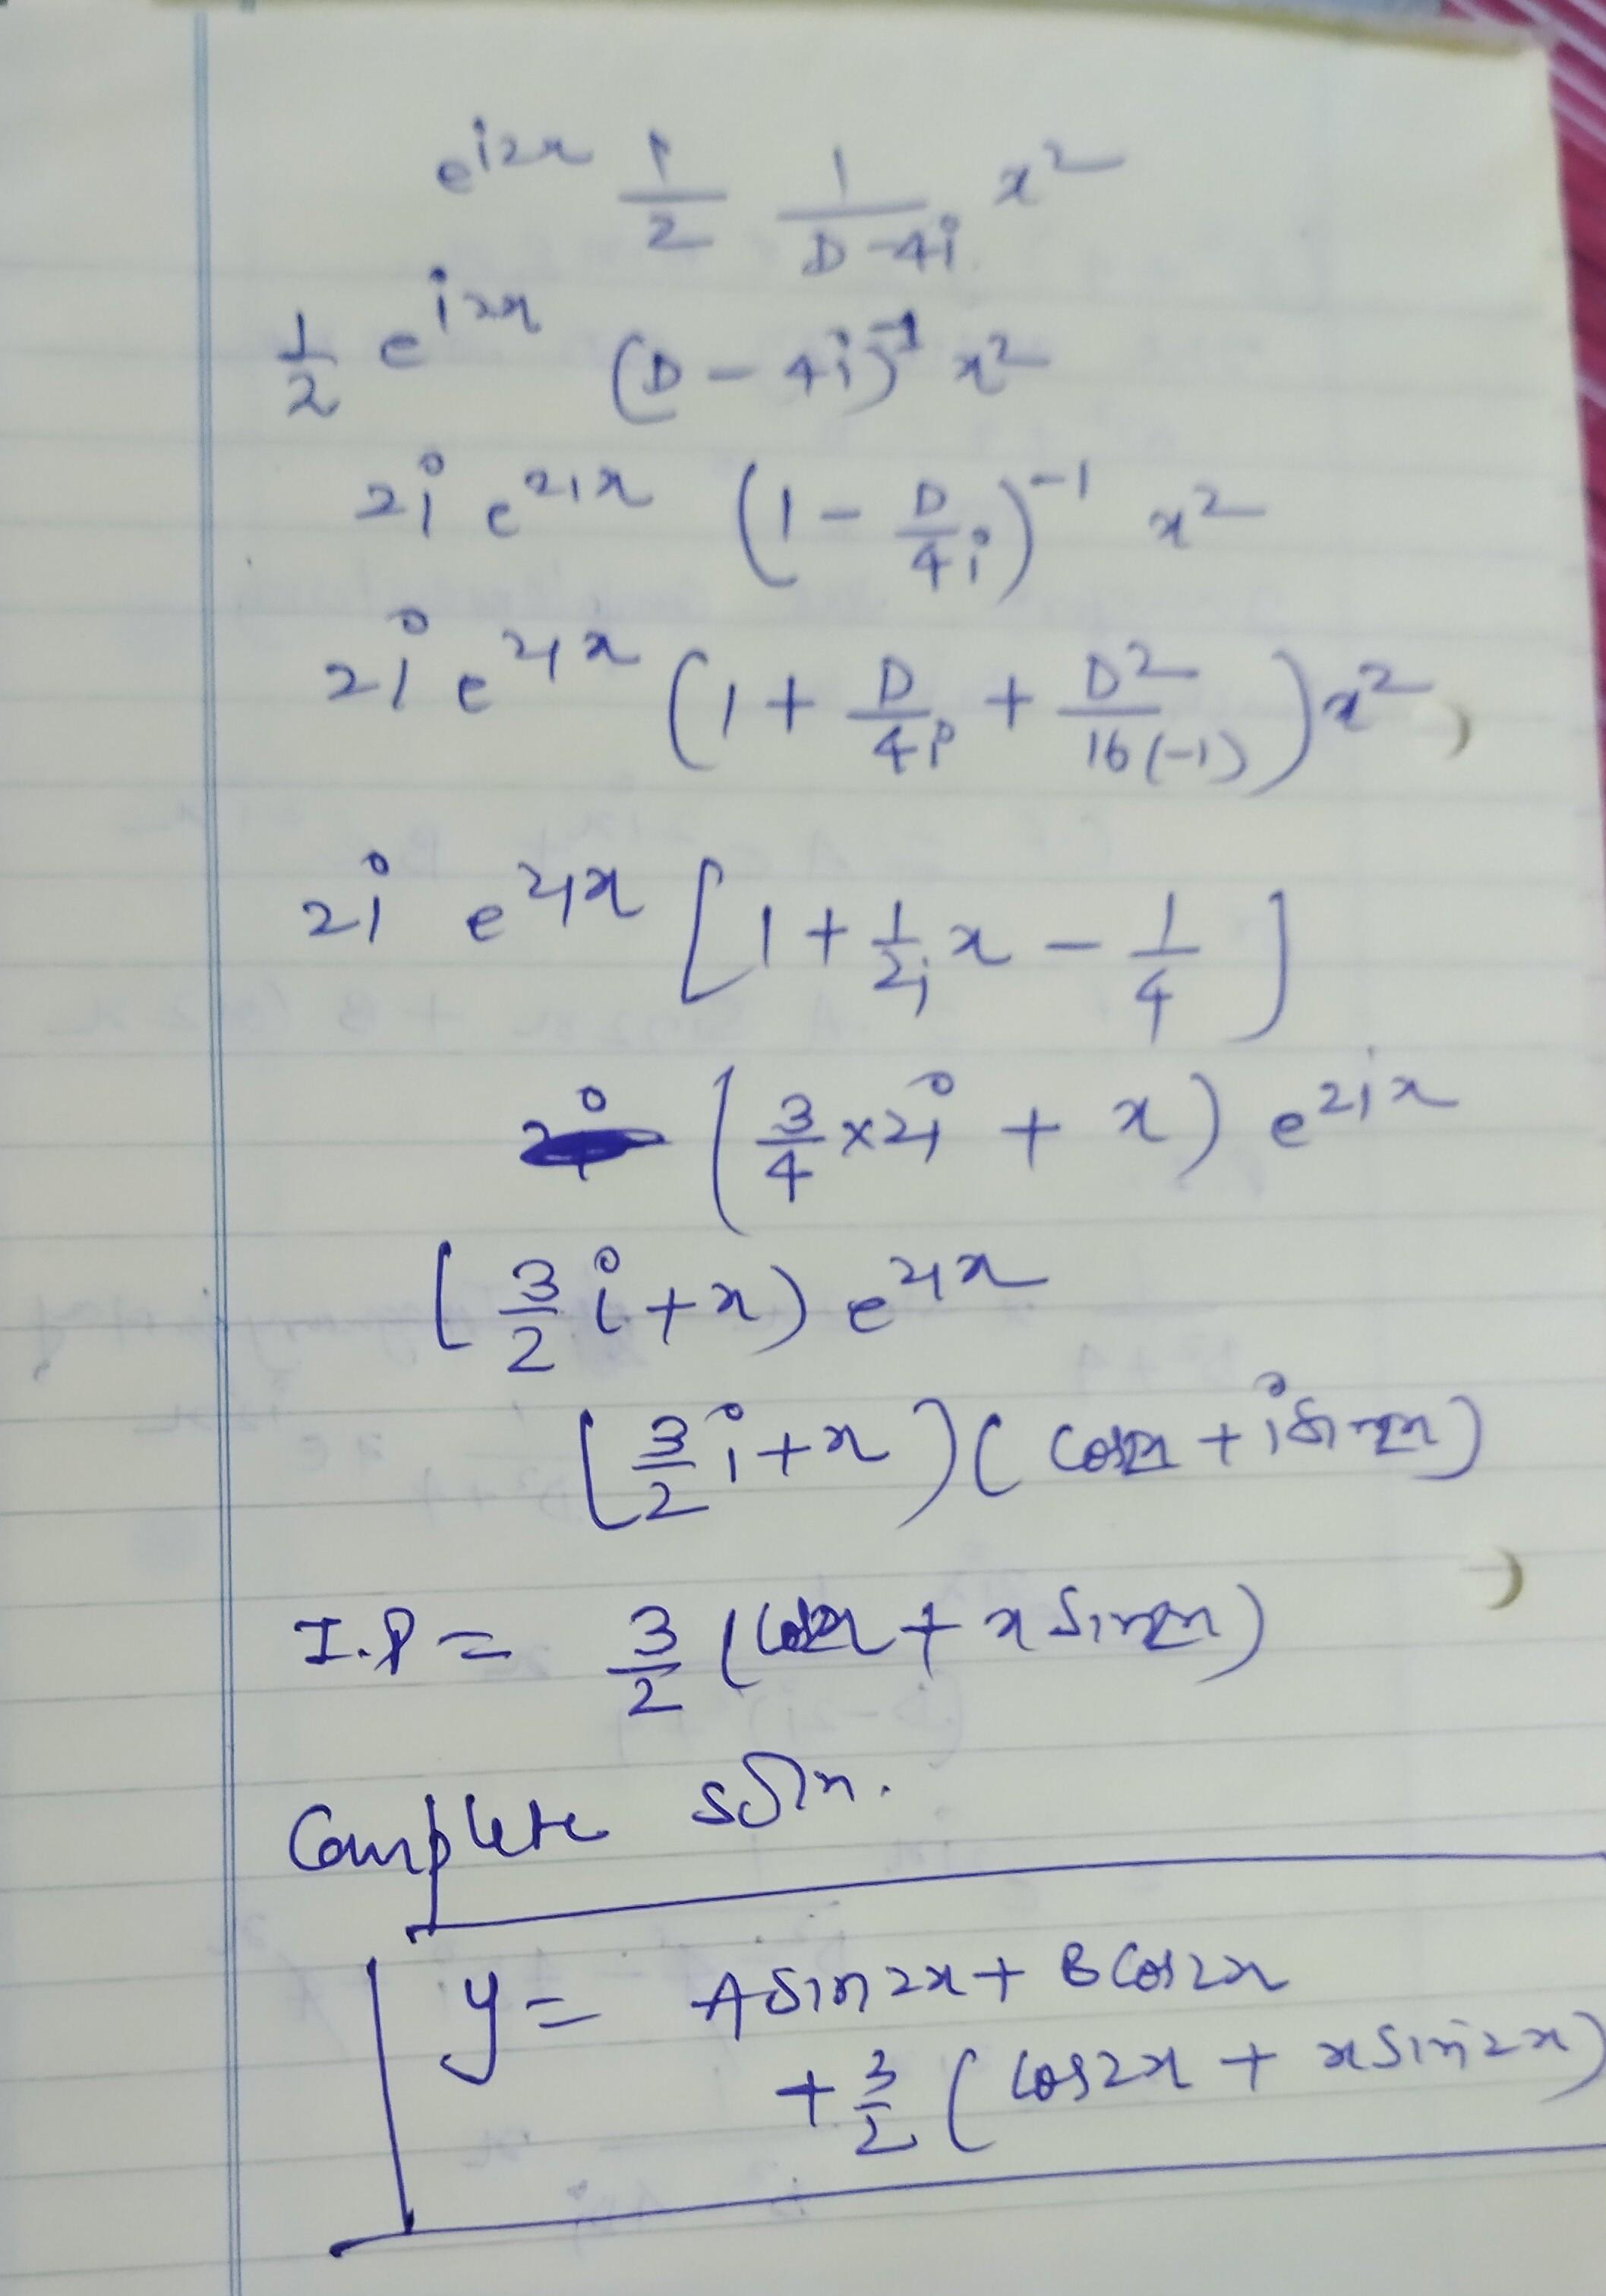 e^{i2x} 1/2 1/(D-4i) x^2
1/2 e^{i2x} (D - 4i)^{-1} x^2
2i e^{2ix} (1 - D/4i)^{-1} x^2
2i e^{2ix} (1 + D/4i + D^2/16(-1)) x^2
2i e^{2ix} [1 + 1/2i x - 1/4]
(3/4 × 2i + x) e^{2ix}
(3/2 i + x) e^{2ix}
(3/2 i + x) (cos2x + i sin2x)
I.P = 3/2 (cos2x + x sin2x)
Complete soln.
y = A sin2x + B cos2x
+ 3/2 (cos2x + x sin2x)